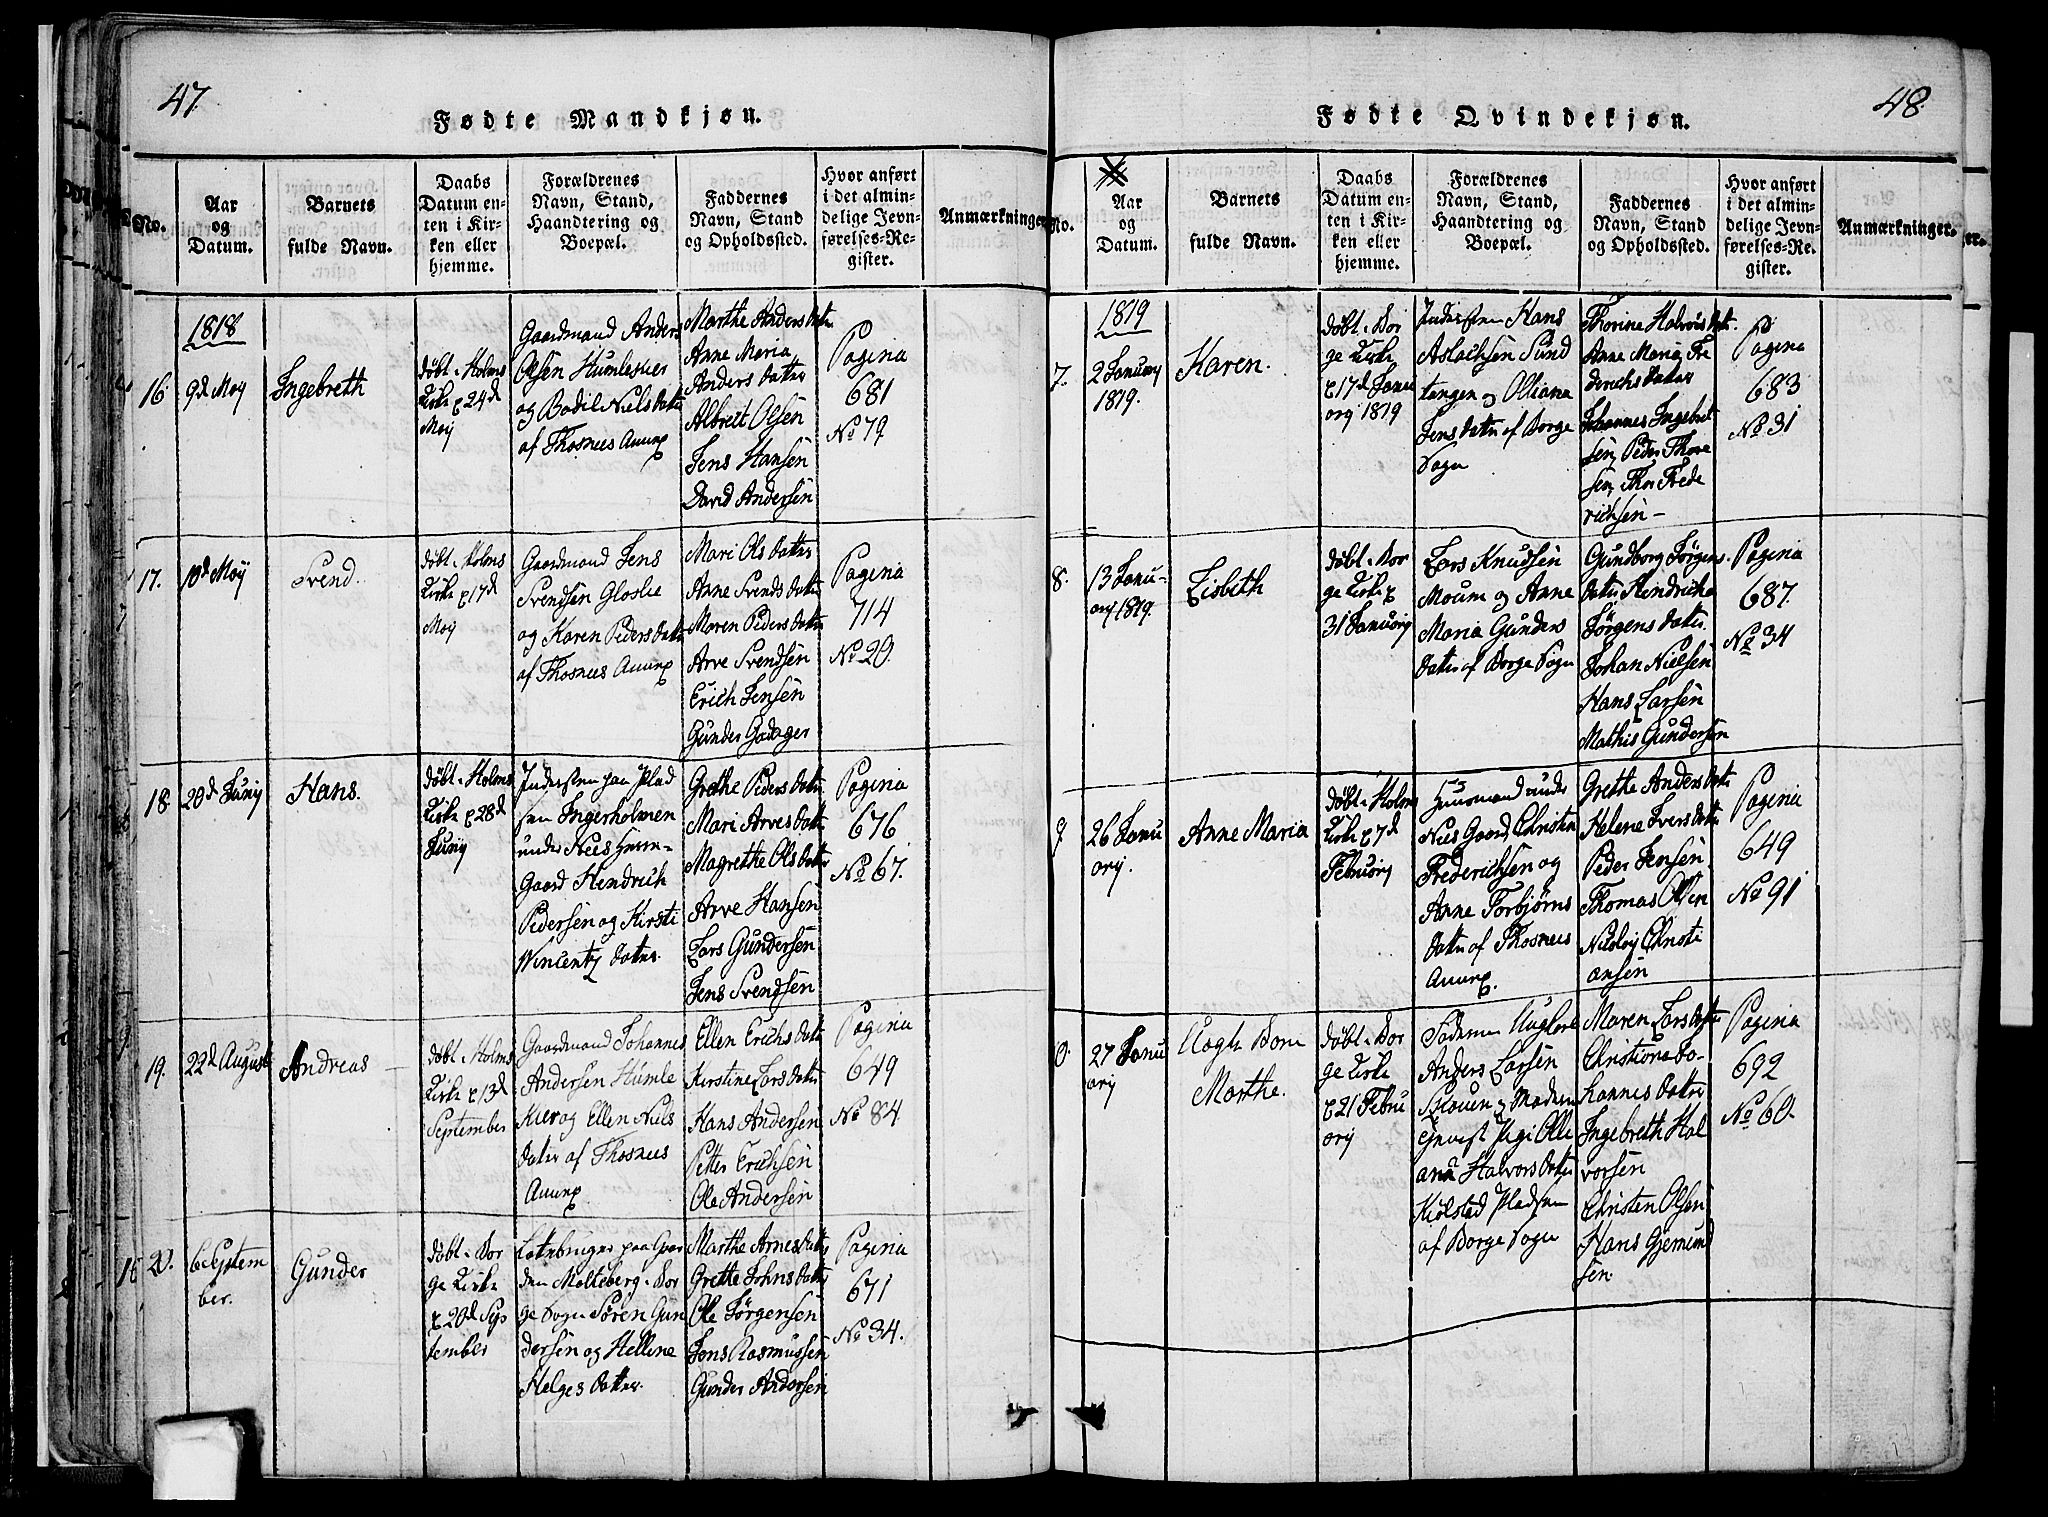 47.
Fødte Mandkjøn.
No.
Aar
og
Datum.
Barnets
fulde Navn.
Daabs
Datum en-
ten i Kir-
ken eller
hjemme.
Forældrenes
Navn, Stand,
Haandtering og
Boepæl.
Faddernes
Navn, Stand
og Opholdssted.
Hvor anført
i det almin-
delige Jevn-
førelses-Re-
gister.
Anmærkninger.
1818
16.
9d Maij
Ingebreth
døbt i Holms
Kirke
24d
Maij
Gaardmand Anders
Olsen Humlekier
og Bodil Niels datter
af Thosnæs Annex
Marthe Anders datter
Anne Maria
Anders datter
Albrett Olsen
Jens Hansen
David Andersen
Pagina
681
No 79
17.
10d Maij
Svend.
døbt i Holms
Kirke
17d
Maij
Gaardmand Jens
Svendsen Gloslie
og Karen Peders datter
af Thosnæs Annex
Mari Ols datter
Anne Svends datter
Maren Peders datter
Arve Svendsen
Erich Jensen
Gunder
Pagina
714
No 20.
18.
20d Junij
Hans.
døbt i Holms
Kirke
28d
Junij
Indersten paa Plad
sen Ingerholmen
under Næs
Gaard Hendrich
Pedersen og Kirsti
Vincentz datter.
Grethe Peders datter
Mari Arves datter
Magrethe Ols datter
Arve Hansen
Lars Gundersen
Jens Svendsen
Pagina
676
No 67.
19.
22d August
Andreas
døbt i Holms
Kirke
13d
September
Gaardmand Johannes
Andersen Humle
kier og Ellen Niels
datter af Thosnæs
Annex
Ellen Erichs datter
Kirstine Lars datter
Hans Andersen
Petter Erichsen
Ole Andersen
Pagina
649
No 84.
20.
6 Septem
ber.
Gunder
døbt i Bor
ge Kirke
20d Sep
tember
paa Gaar
den Molteberg i Bor
ge Sogn Søren Gun
dersen og Hellene
Helges datter.
Marthe Arnes datter
Grette Johns datter
Ole Jørgensen
Jens Rasmussen
Gunder Andersen
Pagina
671
No 34.
48.
Fødte Qvindekjøn.
No.
Aar
og
Datum.
Barnets
fulde Navn.
Daabs
Datum en-
ten i Kir-
ken eller
hjemme.
Forældrenes
Navn, Stand,
Haandtering og
Boepæl.
Faddernes
Navn, Stand
og Opholdssted.
Hvor anført
i det almin-
delige Jevn-
førelses-Re-
gister.
Anmærkninger.
1819
7.
2 Januarij
1819.
Karen.
døbt i Bor
ge Kirke
17d Janu
arij 1819
Indersten Hans
Aslachsen Sund
tangen og Olliana
Jens datter af Borge
Sogn
Thorine Halvors datter
Anne Maria Fre
derichs datter
Johannes Ingebret
sen, Peder Thore
sen, Thor Frede
richsen
Pagina
683
No 31
8.
13 Janu-
arij 1819.
Lisbeth
døbt i Bor
ge Kirke
31 Januarij
Lars Knudsen
Moum og Anne
Maria Gunders
datter af Borge Sogn
Gundborg Jørgens
datter Hendricha
Jørgens datter.
Johan Nielsen
Hans Larsen
Mathis Gundersen
Pagina
687.
No 34
9
26 Janu
arij.
Anne Maria
døbt i Holms
Kirke
7d
Februarij
Huusmand under
Næs Gaard, Christen
Frederichsen og
Anne Torbjørns
datter af Thosnæs
Annex.
Grethe Anders datter
Helene Ivers datter
Peder Jensen
Thomas Olsen
Nicolaij Christi
ansen
Pagina
649
No 91
0.
27 Janu
arij
Uægte Barn
Marthe.
døbt i Bor
ge Kirke
21 Febru
arij
Faderen Ungkarl
Anders Larsen
og Moderen
Pige Olle
ana Halvors datter
Kiølstad Pladsen
af Borge Sogn
Maren Lars datter
Christiane Jo-
hannes datter
Ingebreth Hal
vorsen
Christen Olsen
Hans Gjemund
sen.
Pagina
692
No 60.